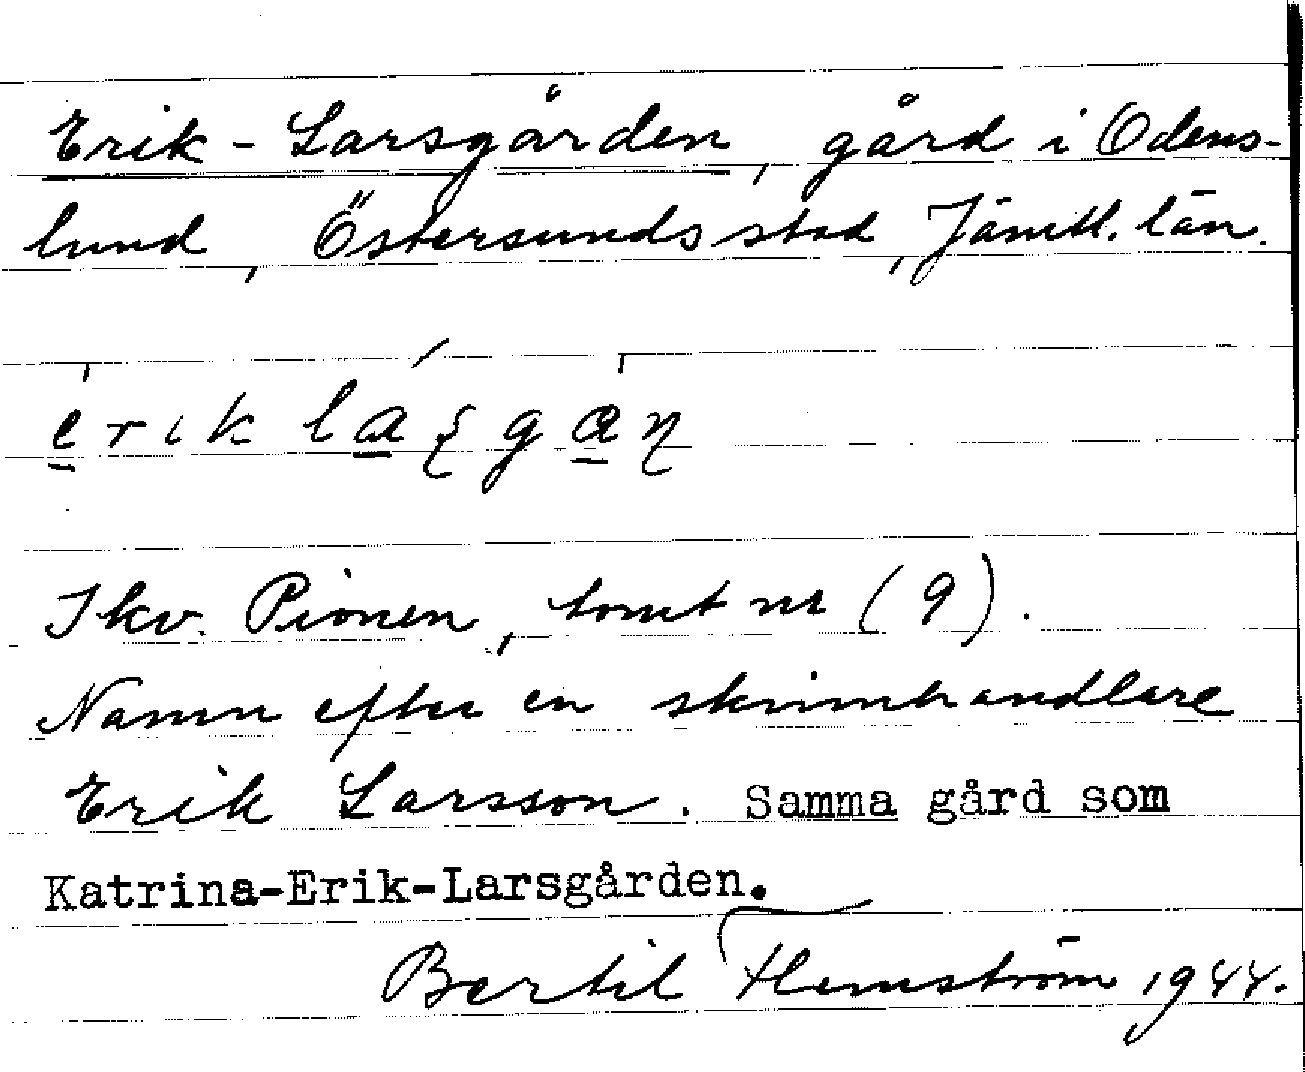 Erik-Larsgården, gård i Odens-
lund, Östersunds stad, Jämtl. län.
erik laʂgaɳ
I kv. Pionen, tomt nr (9).
Namn efter en skinnhandlare
Erik Larsson. Samma gård som
Katrina-Erik-Larsgården.
Bertil Flemström 1944.